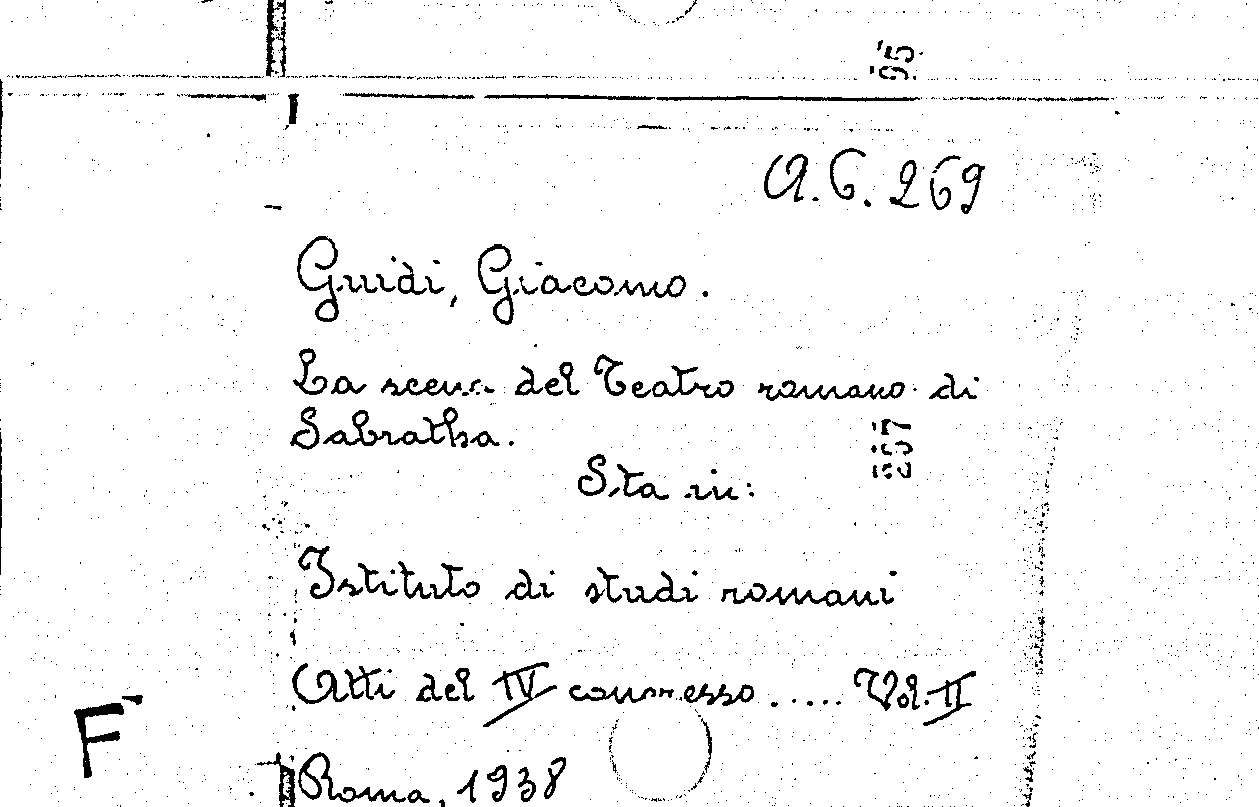 95.
A.6.269
Guidi, Giacomo.
La scena del Teatro romano di
Sabratha.
257
Sta in:
Istituto di studi romani
Atti del IV congresso ..... Vol. II
F
Roma, 1938